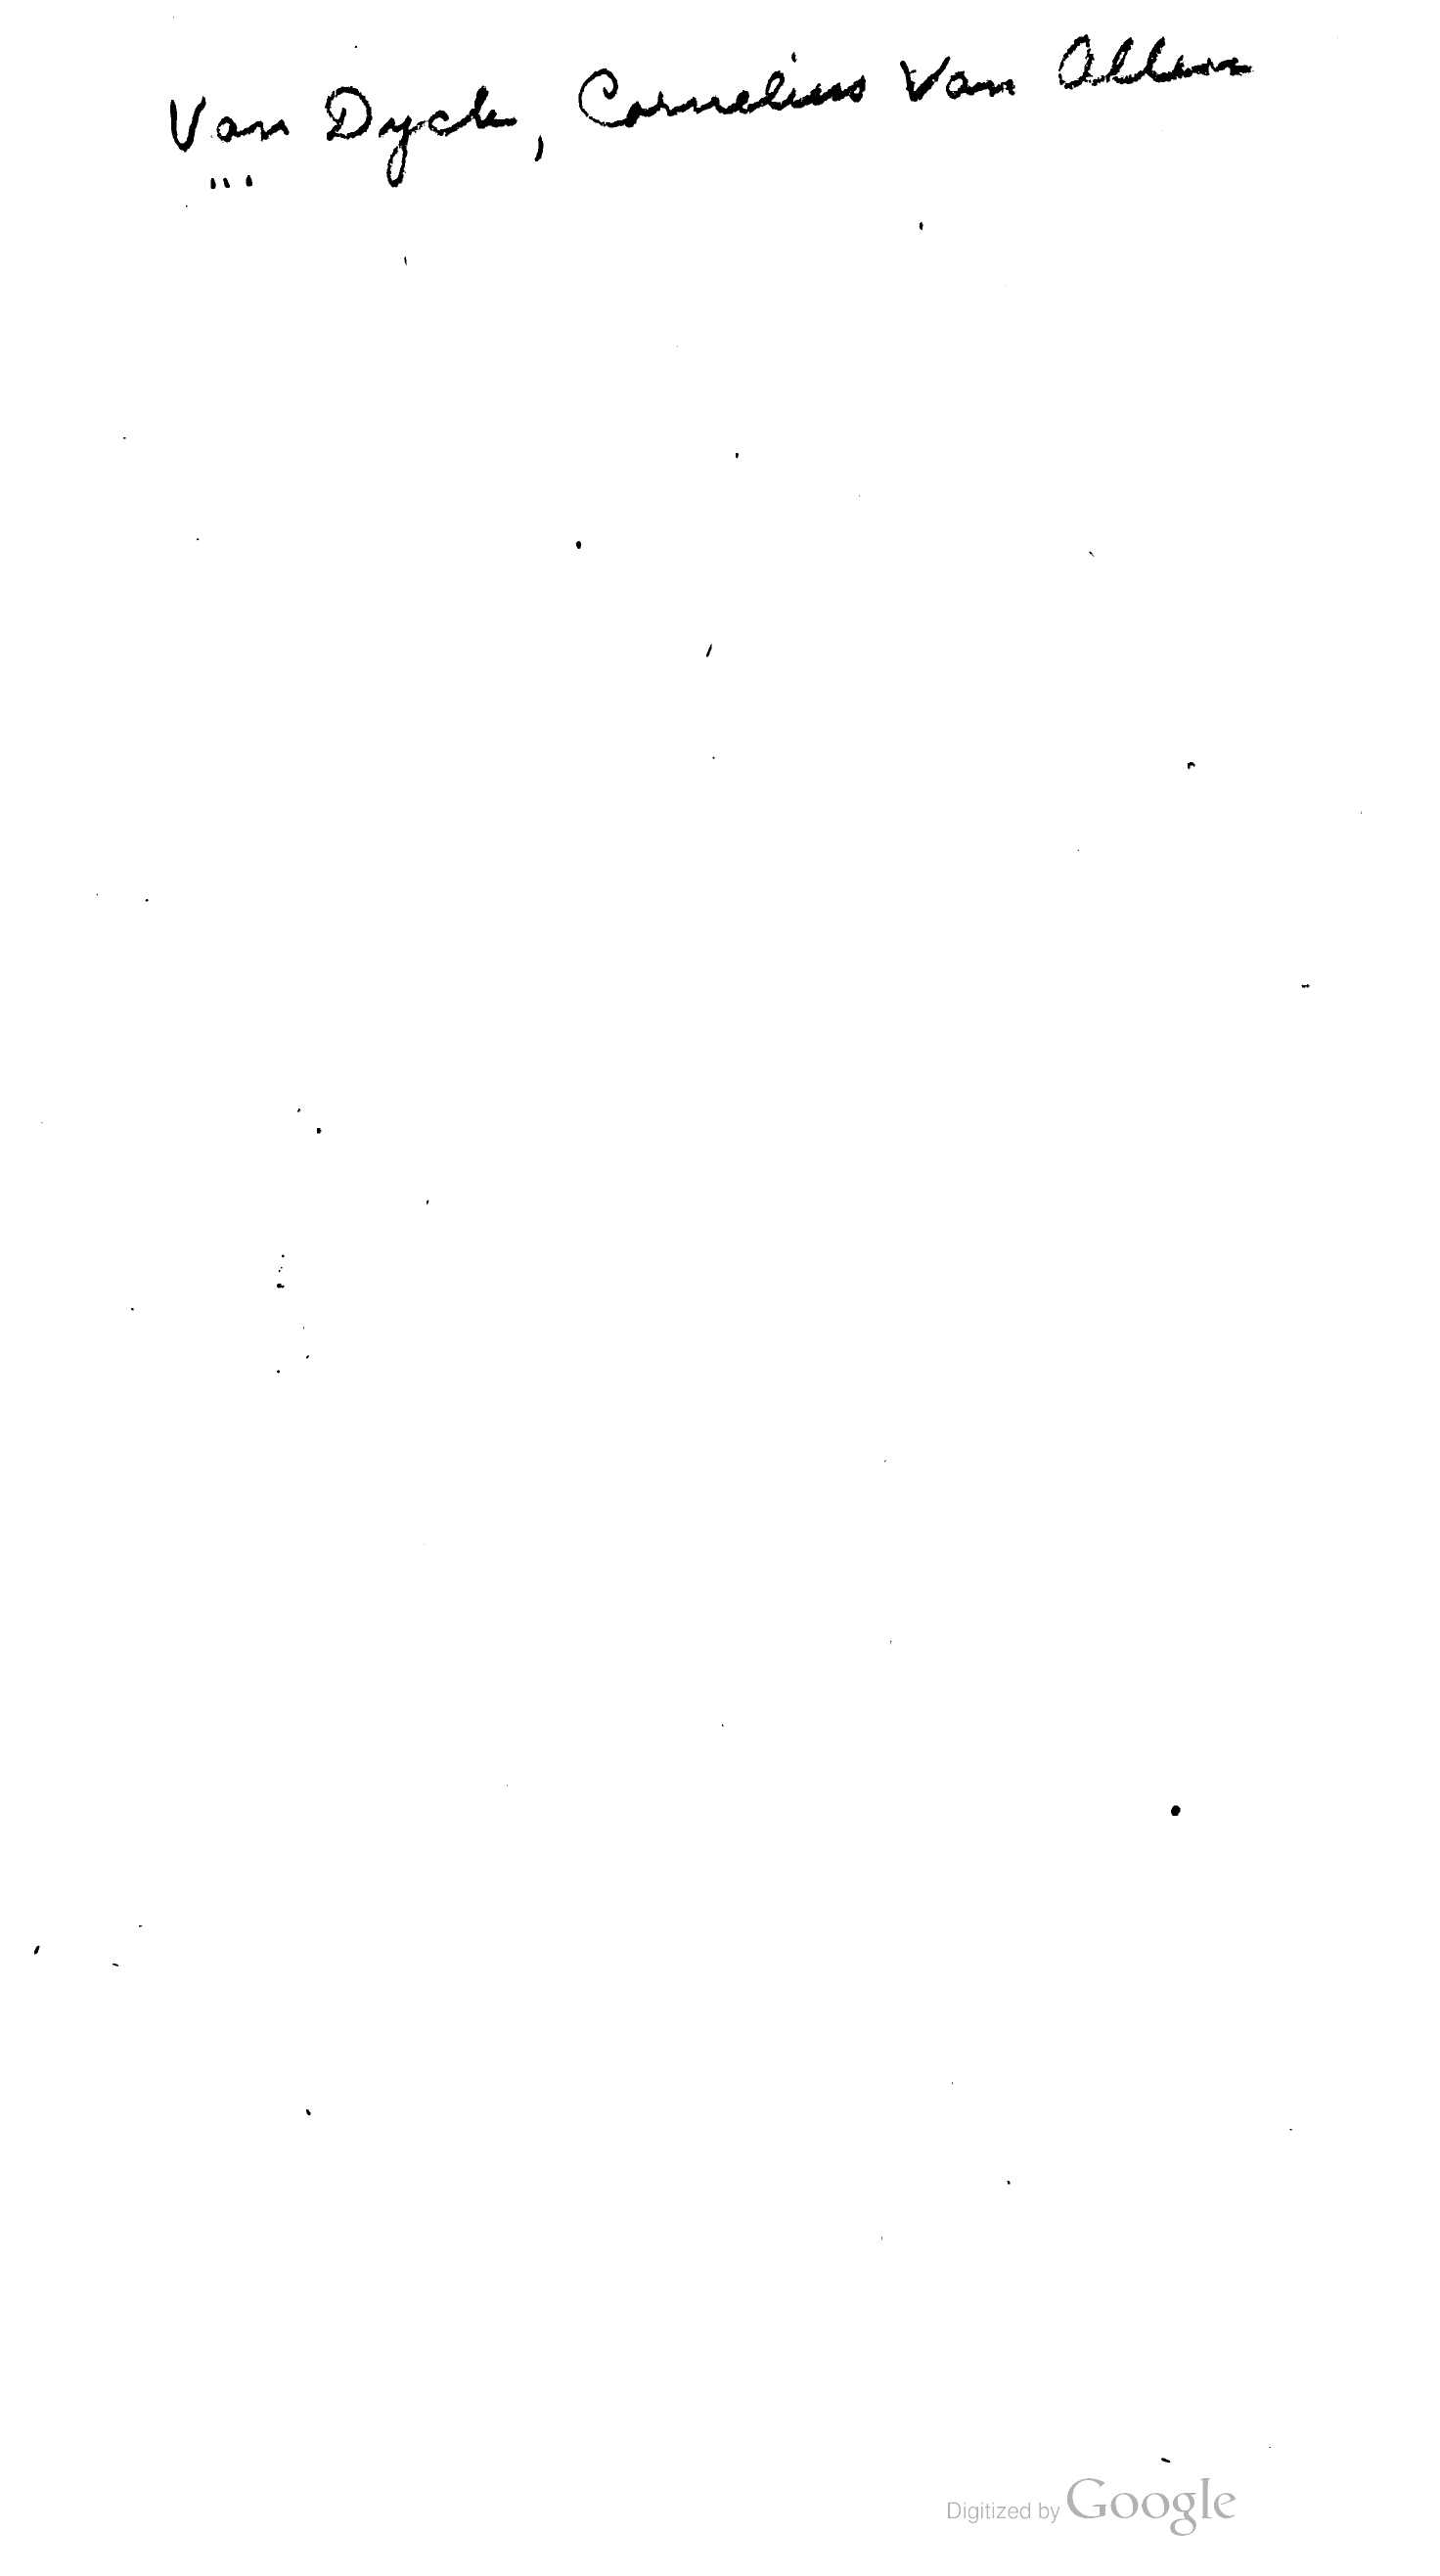 Van Dyck, Cornelius Van Allen
Digitized by Google